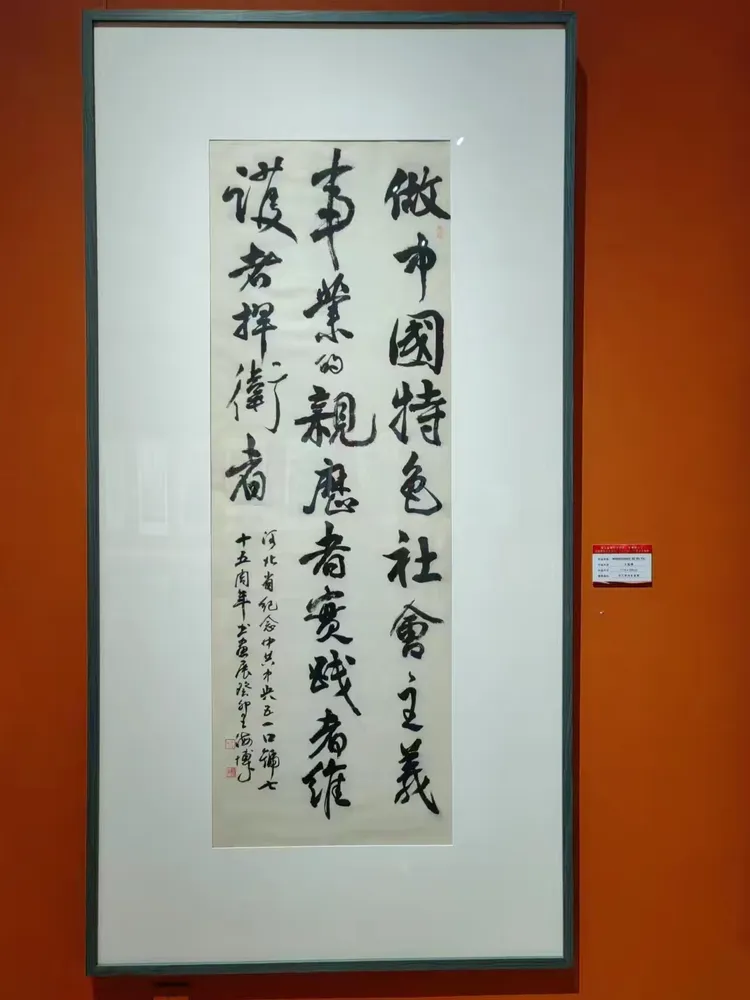 做中國特色社會主義
事業的親歷者實踐者維
護者捍衛者
河北省紀念中共中央五一口號七
十五周年書畫展癸卯王海博